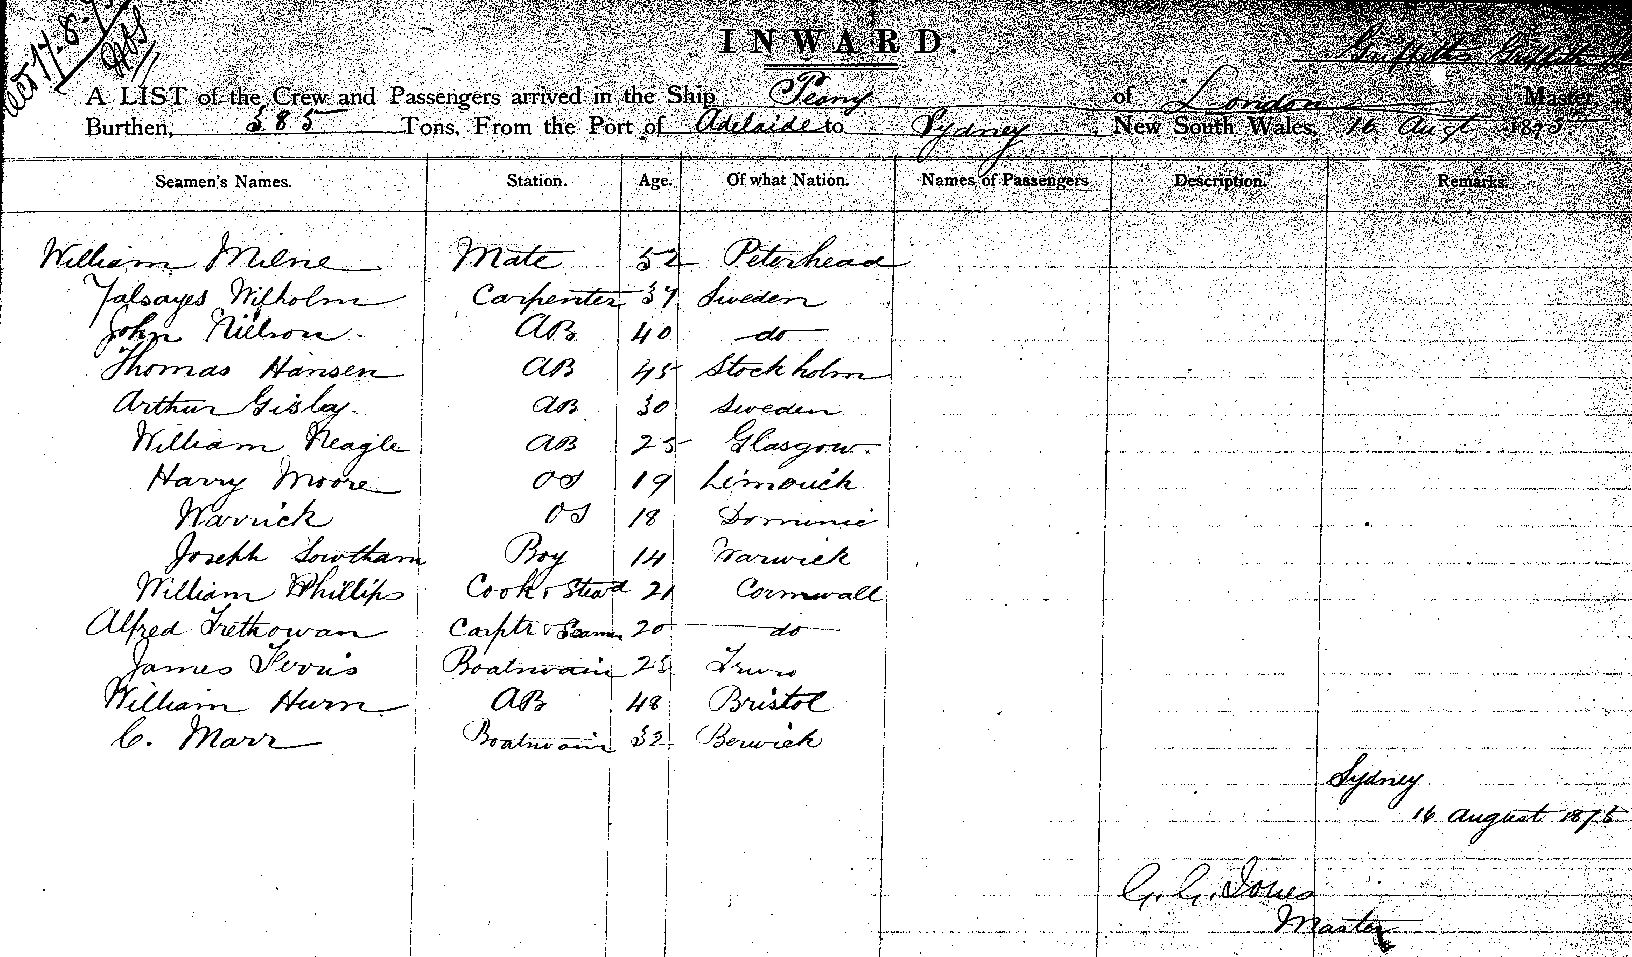 17.8.75
INWARD.
Griffith Griffith
A LIST of the Crew and Passengers arrived in the Ship Peony of London Master
Burthen, 385 Tons, From the Port of Adelaide to Sydney, New South Wales, 16 Augt 1875
Seamen's Names. Station. Age. Of what Nation. Names of Passengers Description. Remarks.
William Milne Mate 52 Peterhead
Wilholm Carpenter 37 Sweden
John Nillson AB 40 do
Thomas Hansen AB 45 Stockholm
Arthur Gisley AB 30 Sweden
William Neagle AB 25 Glasgow.
Harry Moore OS 19 Limouick
Warrick OS 18 Dominic
Joseph Lowtham Boy 14 Warwick
William Phillips Cook & Stewd 21 Cornwall
Alfred Trethowan Carptr & Seaman 20 do
James Boatswain 25 Truro
William Hurn AB 48 Bristol
C. Marr Boatswain 32 Berwick
Sydney
16 August 1875
G. G. Jones
Master